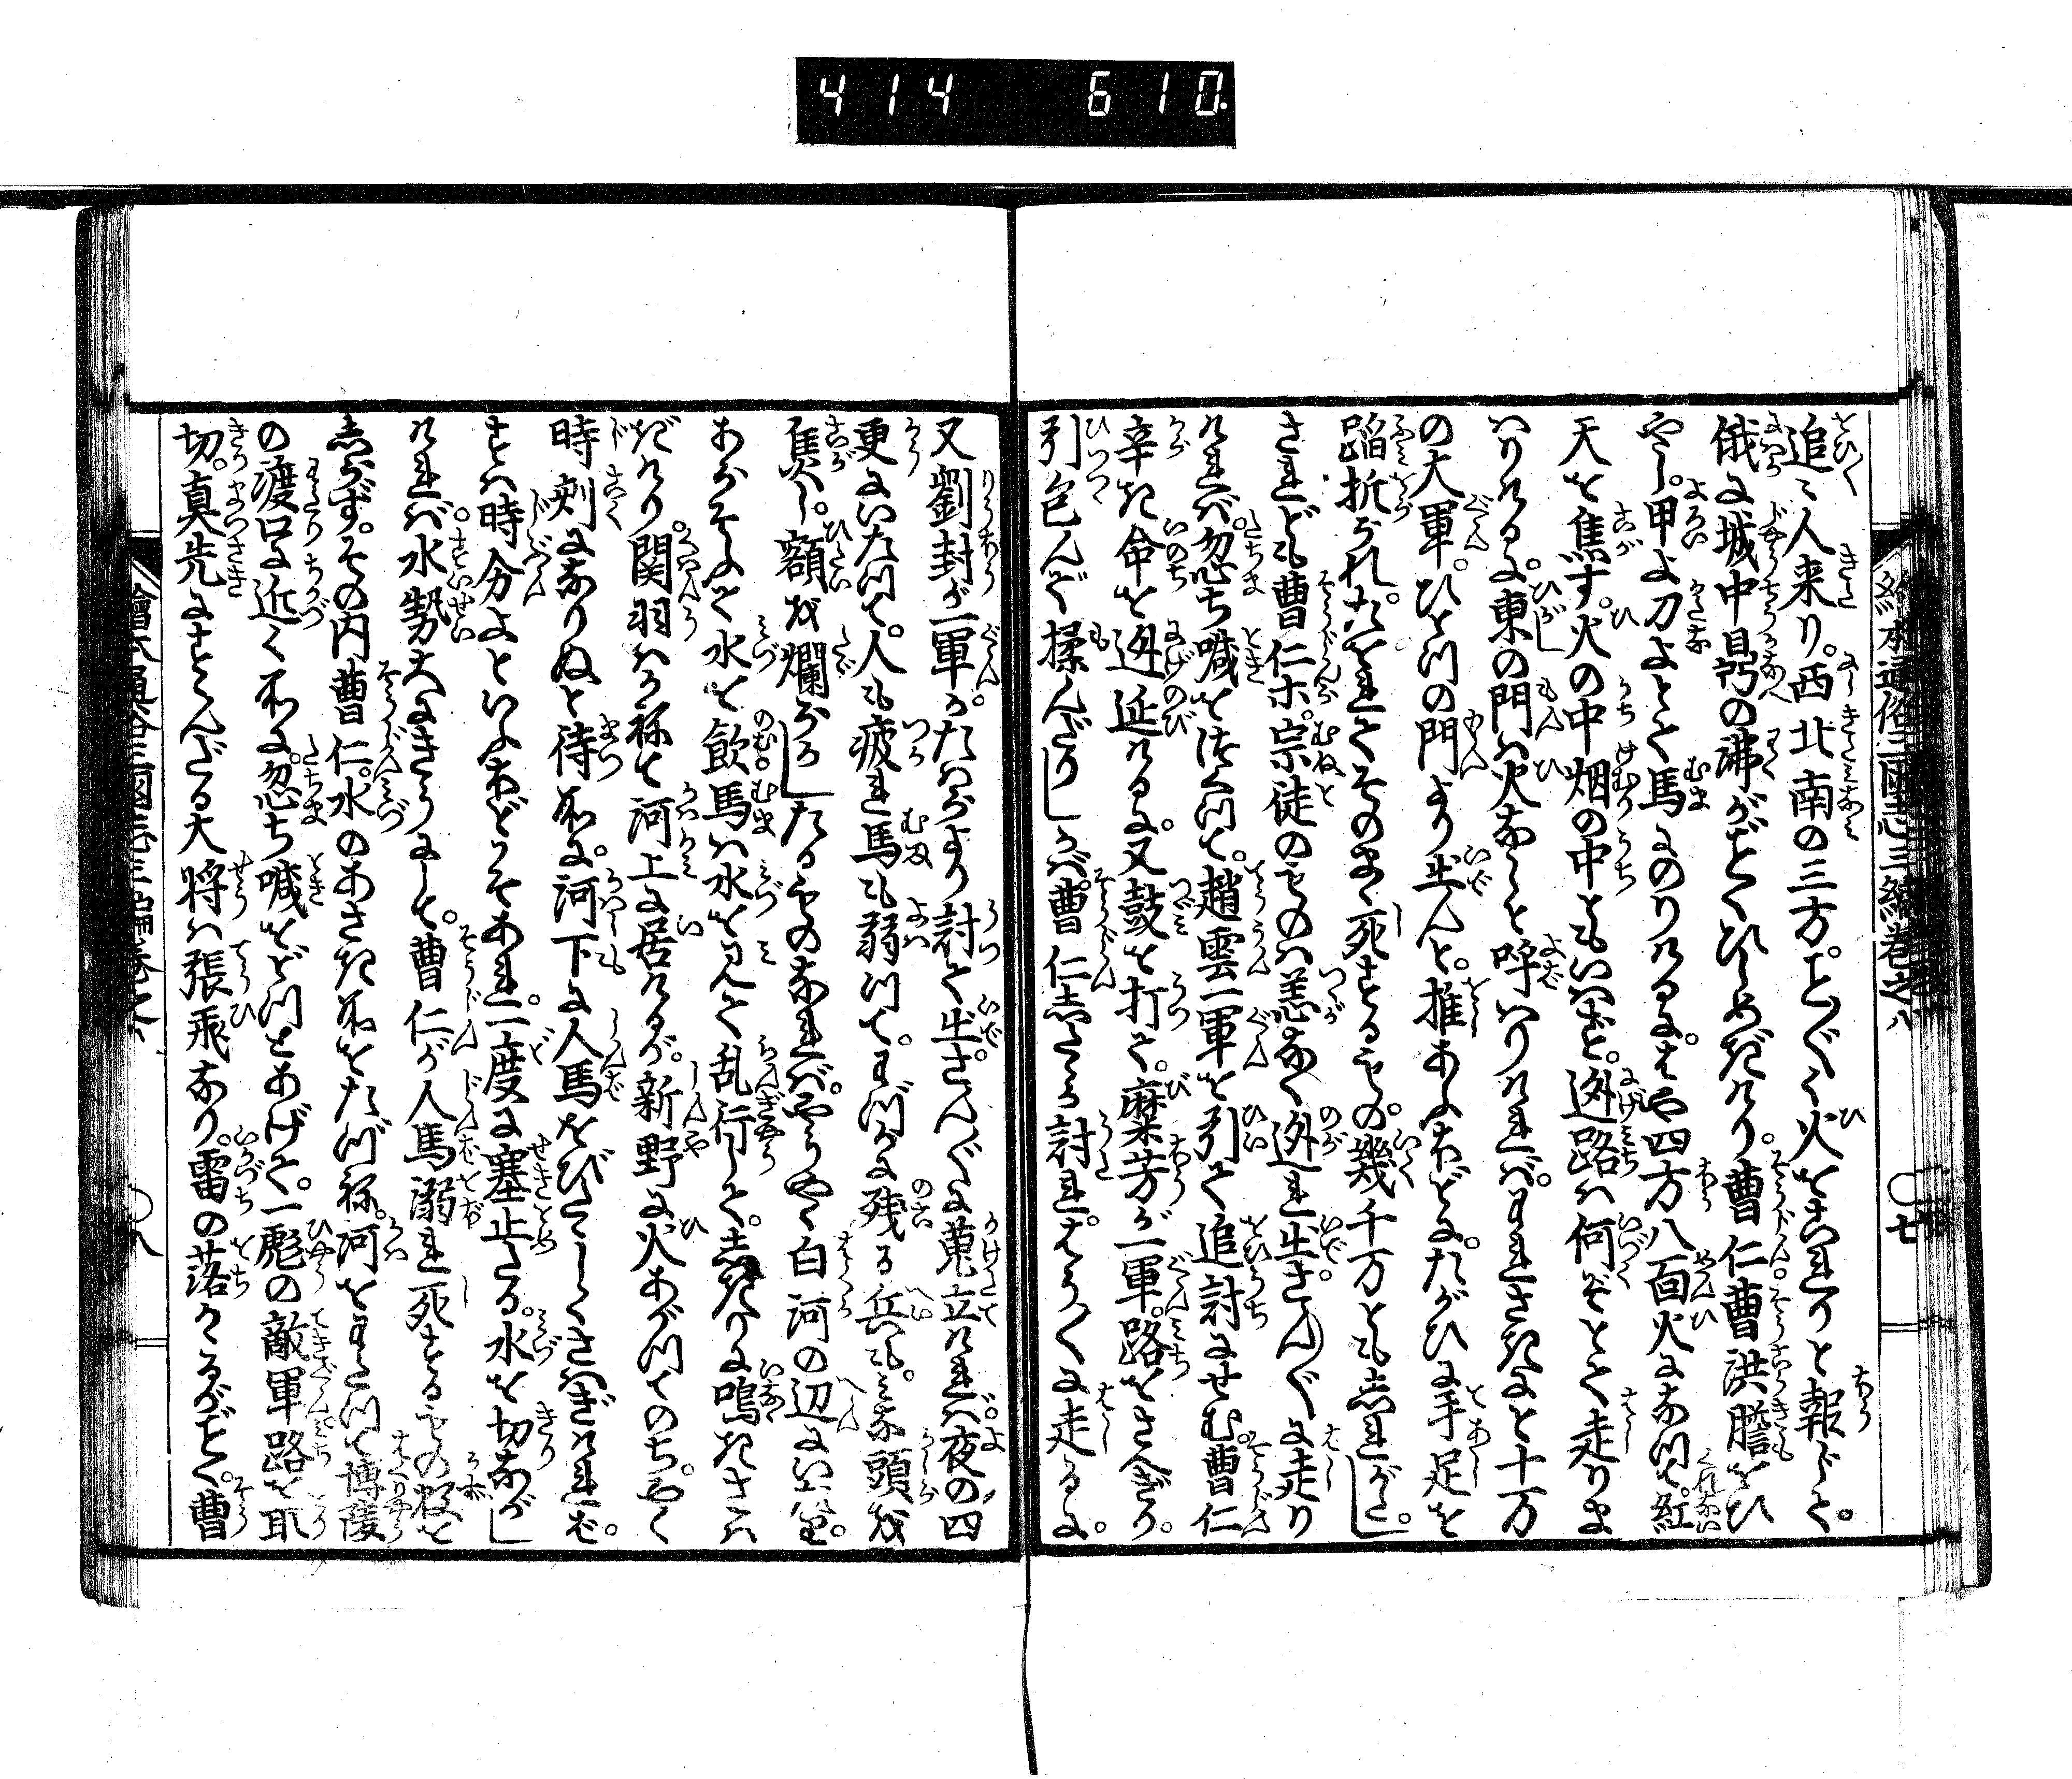 414 610.
絵本通俗三國志三編巻之八 七
追〻人来り。西北南の三方。ことごとく火をはなれりと報じて。
俄に城中鼎の沸がごとくひしめきけり。曹仁曹洪膽をひ
やし。甲よ刀よとて馬にのりけるに。はや四方八面火になつて。紅
天を焦す。火の中烟の中ともいはず。迯路は何ぞとて走りま
はりけるに。東の門は火なしと呼はりければ。われさきにと十万
の大軍。ひとつの門より出んと。推あふほどに。たがひに手足を
蹈折られ。たをれてそのまゝ死するもの。幾千万とも知れがたし。
されども曹仁ホ。宗徒のものは恙なく迯れ出。さんざんに走り
ければ。忽ち喊をつくつて。趙雲一軍を引て追討にせむ。曹仁
辛き命を迯延けるに。又鼓を打て。糜芳が一軍。路をさへぎり。
引包んで揉んだりしかば。曹仁したゝか討れ。はうはうに走るに。
又劉封が一軍。かたはらより討て出。さんざんに蒐立ければ。夜の四
更にいたつて。人も疲れ馬も弱つて。わづかに残る兵も。みな頭を
焦し。額を爛らかしたるものなれば。やうやく白河の辺にいたり。
あらそふて水を飲。馬は水を見て乱行して。しきりに嘶きさは
ぎけり。関羽はかねて河上に居けるが。新野に火あがつてのち。やく
時刻になりぬと待所に。河下に人馬をびたゝしくさはぎければ。
すは時分よといふほどこそあれ。一度に塞止たる。水を切ながし
ければ。水勢大なきうにして。曹仁が人馬溺れ死するもの数を
しらず。その内曹仁。水のあさき所をたづね。河をわたつて博陵
の渡口に近く所に。忽ち喊をどつとあげて。一彪の敵軍路を取
切。真先にすゝんだる大将は張飛なり。雷の落かゝるがごとく。曹
繪本通俗三國志三編巻之八 八